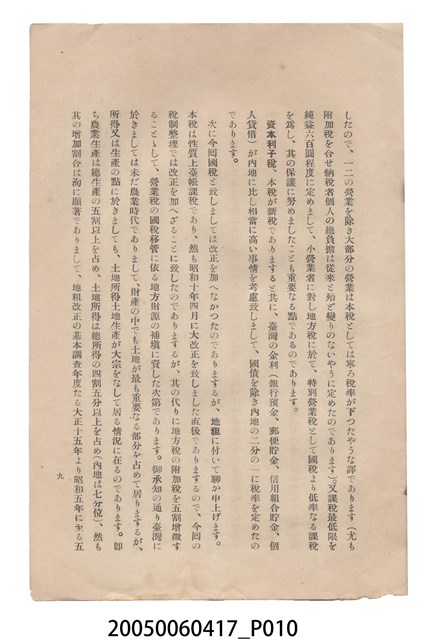 したので、一二の營業を除き大部分の營業は本税としては寧ろ税率が下つたやうな譯であります(尤も
附加税を合せ納税者個人の總負擔は從來と殆ど變りのないやうに定めたのであります)。又課税最低限を
純益六百圓程度に定めまして、小營業者に對し地方税に於て、特別營業税として國税より低率なる課税
を爲し、其の保護に努めましたことも重要なる點であるのであります。
資本利子税、本税が新税でありますると共に、臺灣の金利(銀行預金、郵便貯金、信用組合貯金、個
人貸借)が内地に比し相當に高い事情を考慮致しまして、國債を除き内地の二分の一に税率を定めたの
であります。
次に今囘國税と致しましては改正を加へなかつたのでありまするが、地租に付いて聊か申上げます。
本税は性質上臺帳課税であり、然も昭和十年四月に大改正を致しました直後でありまするので、今囘の
税制整理では改正を加へざることに致したのでありまするが、其の代りに地方税の附加税を五割增徴す
ることゝして、營業税の國税移管に依る地方財源の補塡に資した次第であります。御承知の通り臺灣に
於きましては未だ農業時代でありまして、財産の中でも土地が最も重要なる部分を占めて居りまするが、
所得又は生産の點に於きましても、土地所得土地生産が大宗をなして居る情況に在るのであります。卽
ち農業生産は總生産の五割以上を占め、土地所得は總所得の四割五分以上を占め(内地は七分位)、然も
其の增加割合は洵に顯著でありまして、地租改正の基本調査年度たる大正十五年より昭和五年に至る五
九
20050060417_P010